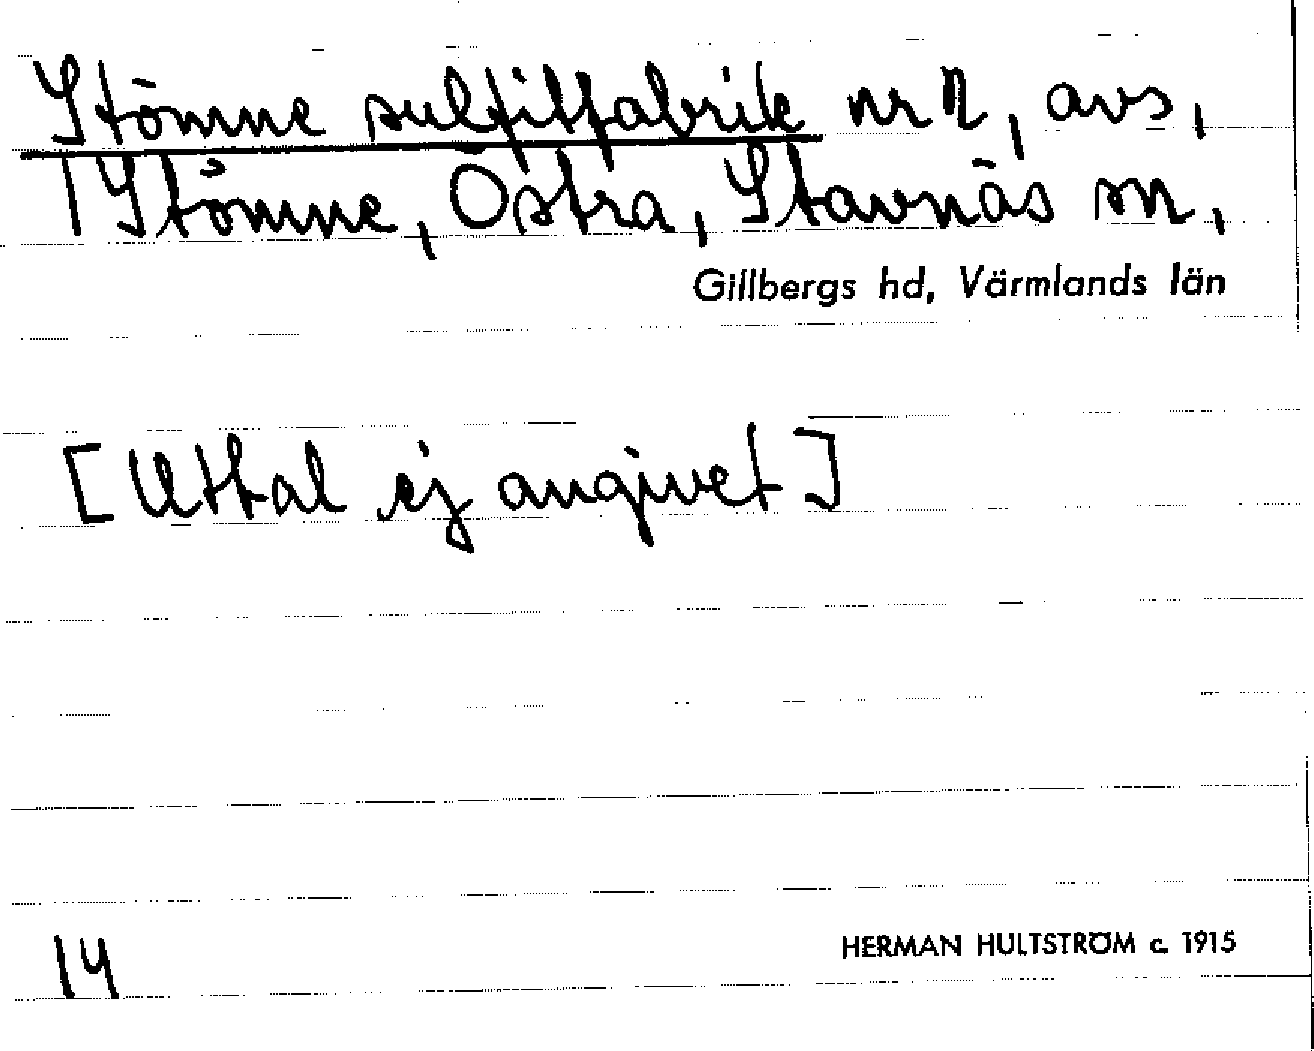 Stömne sulfitfabrik nr 2, avs,
1 Stömne, Östra, Stavnäs sn,
Gillbergs hd, Värmlands län
[Uttal ej angivet]
14
HERMAN HULTSTRÖM c. 1915